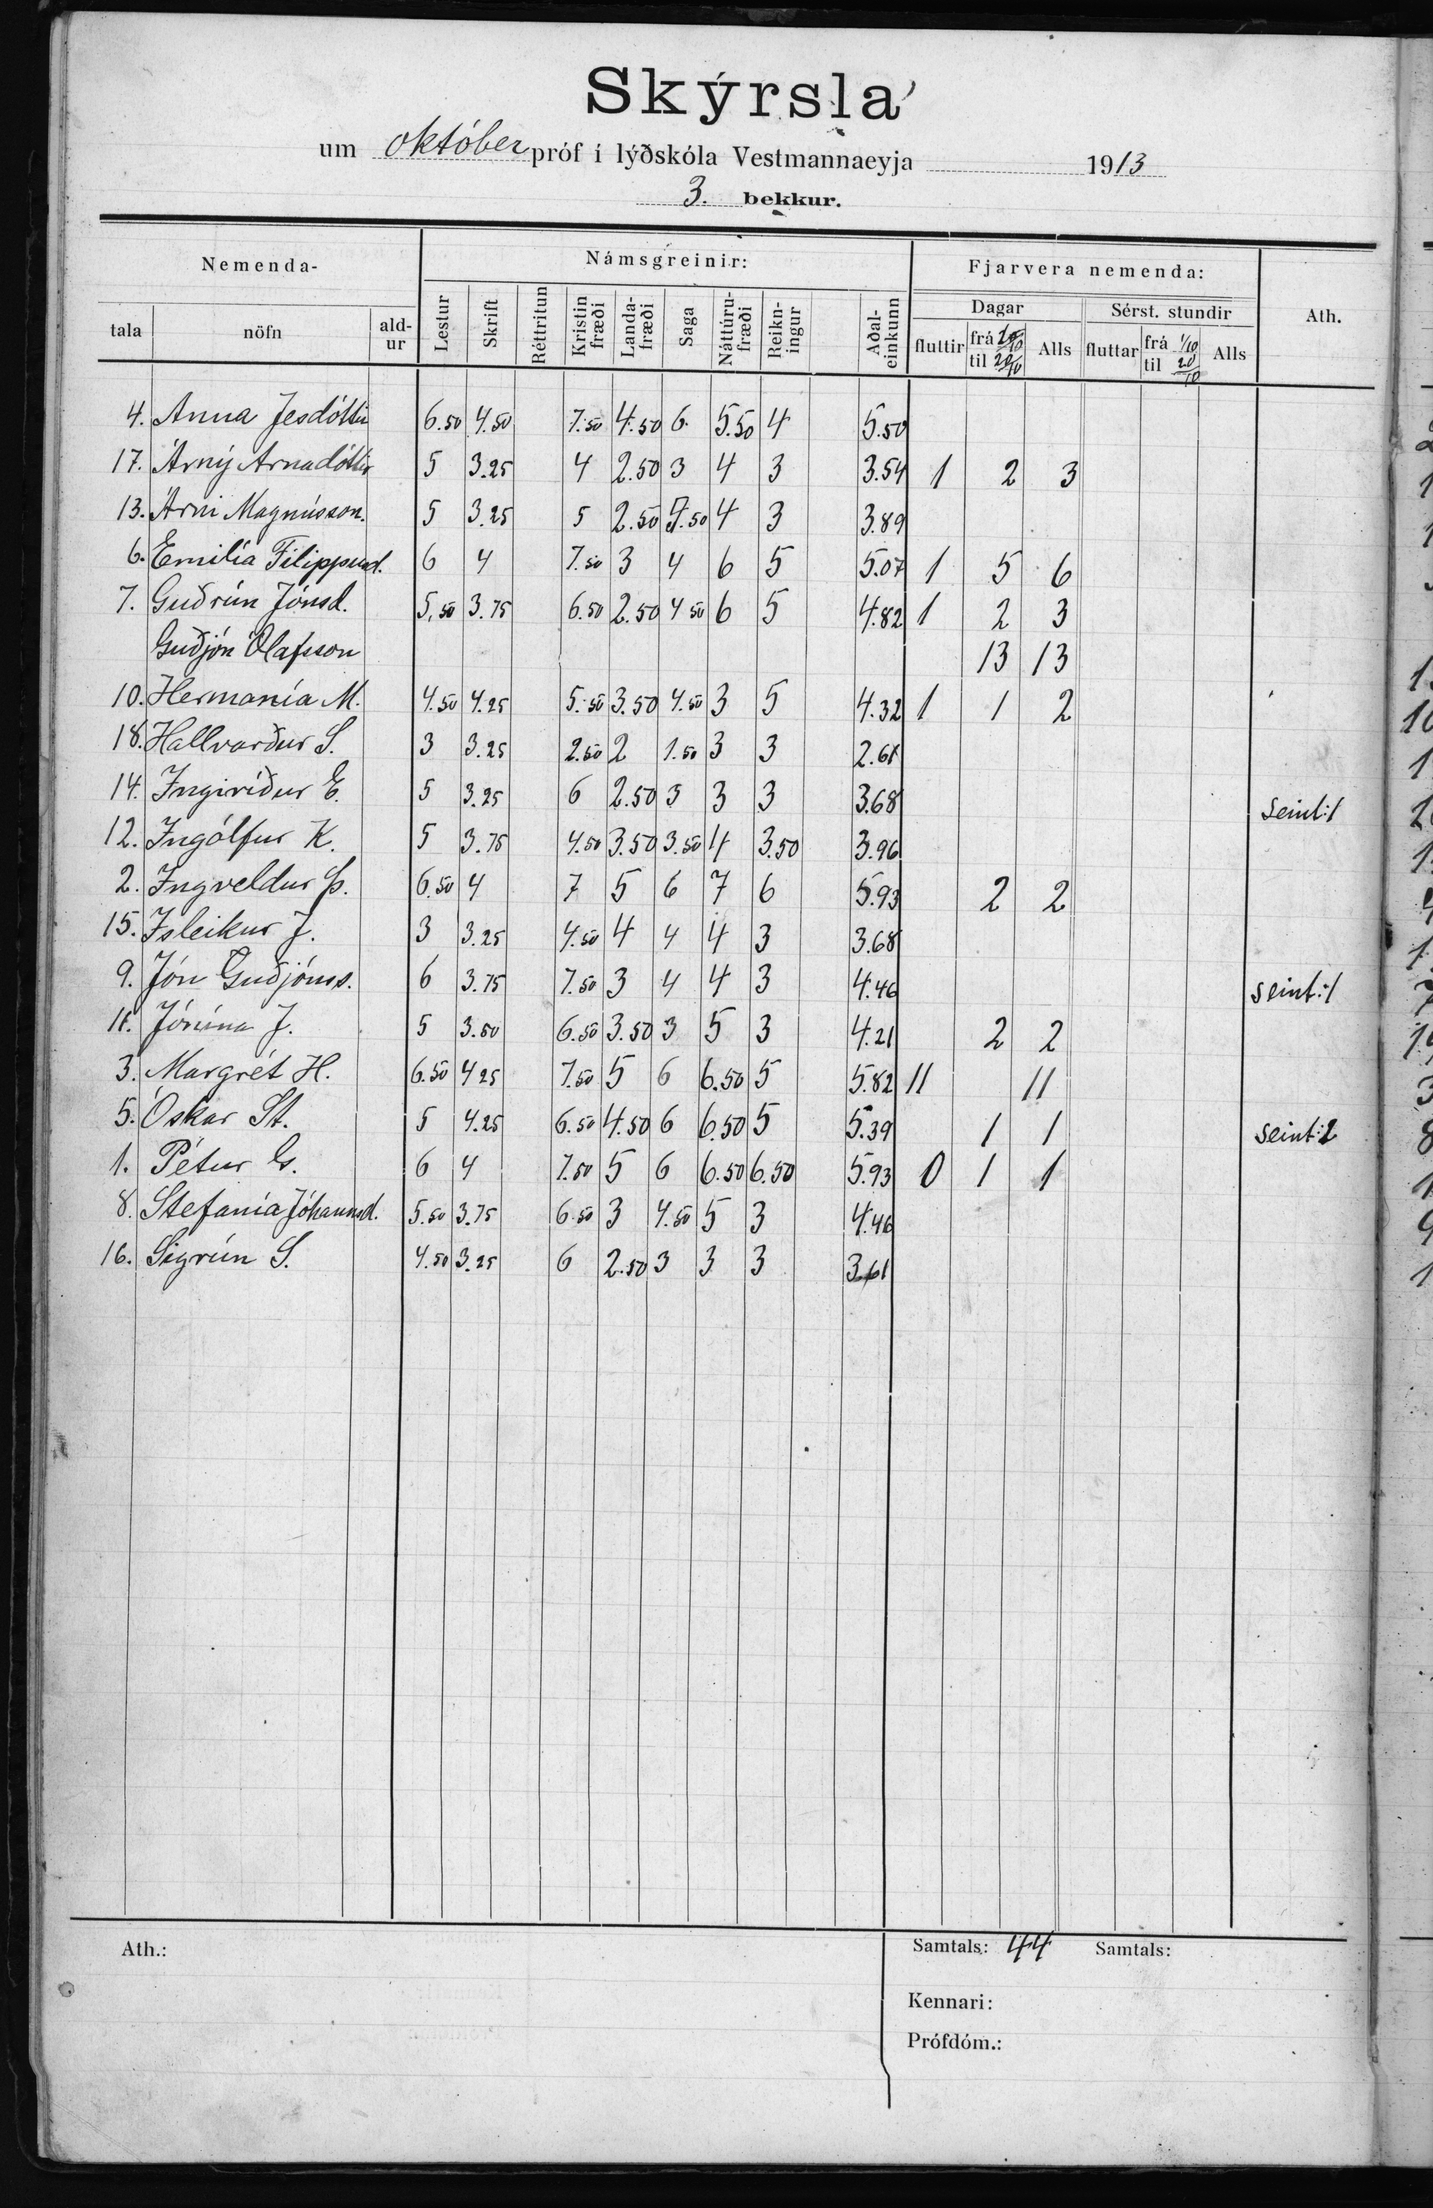 Skýrsla
um október próf í lýðskóla Vestmannaeyja 1913
3. bekkur.
Nemenda- Námsgreinir: Fjarvera nemenda: Ath.
tala nöfn ald-ur Lestur Skrift Réttritun Kristin fræði Landa-fræði Saga Náttúru-fræði Reikn-ingur Aðal-einkunn Dagar Sérst. stundir
fluttir frá til 20/10 Alls fluttar frá 1/10 til 20/10 Alls
4. Anna Jesdóttir 6.50 4.50 7.50 4.50 6. 5.50 4 5.50
17. Árný Arnadóttir 5 3.25 4 2.50 3 4 3 3.54 1 2 3
13. Árni Magnússon. 5 3.25 5 2.50 4.50 4 3 3.89
6. Emilía Filippusd. 6 4 7.50 3 4 6 5 5.07 1 5 6
7. Guðrún Jónsd. 5.50 3.75 6.50 2.50 4.50 6 5 4.82 1 2 3
Guðjón Ólafsson 13 13
10. Hermanía M. 4.50 4.25 5.50 3.50 4.50 3 5 4.32 1 1 2
18. Hallvarður S. 3 3.25 2.50 2 1.50 3 3 2.61
14. Ingiríður E. 5 3.25 6 2.50 3 3 3 3.68 seint:1
12. Ingólfur K. 5 3.75 4.50 3.50 3.50 4 3.50 3.96
2. Ingveldur Þ. 6.50 4 7 5 6 7 6 5.93 2 2
15. Ísleikur J. 3 3.25 4.50 4 4 4 3 3.68
9. Jón Guðjónss. 6 3.75 7.50 3 4 4 3 4.46 seint:1
11. Jónína J. 5 3.50 6.50 3.50 3 5 3 4.21 2 2
3. Margrét H. 6.50 4.25 7.50 5 6 6.50 5 5.82 11 11
5. Óskar St. 5 4.25 6.50 4.50 6 6.50 5 5.39 1 1 seint:2
1. Pétur G. 6 4 7.50 5 6 6.50 6.50 5.93 0 1 1
8. Stefanía Jóhannsd. 5.50 3.75 6.50 3 4.50 5 3 4.46
16. Sigrún S. 4.50 3.25 6 2.50 3 3 3 3.61
Ath.: Samtals: 44 Samtals:
Kennari:
Prófdóm.: